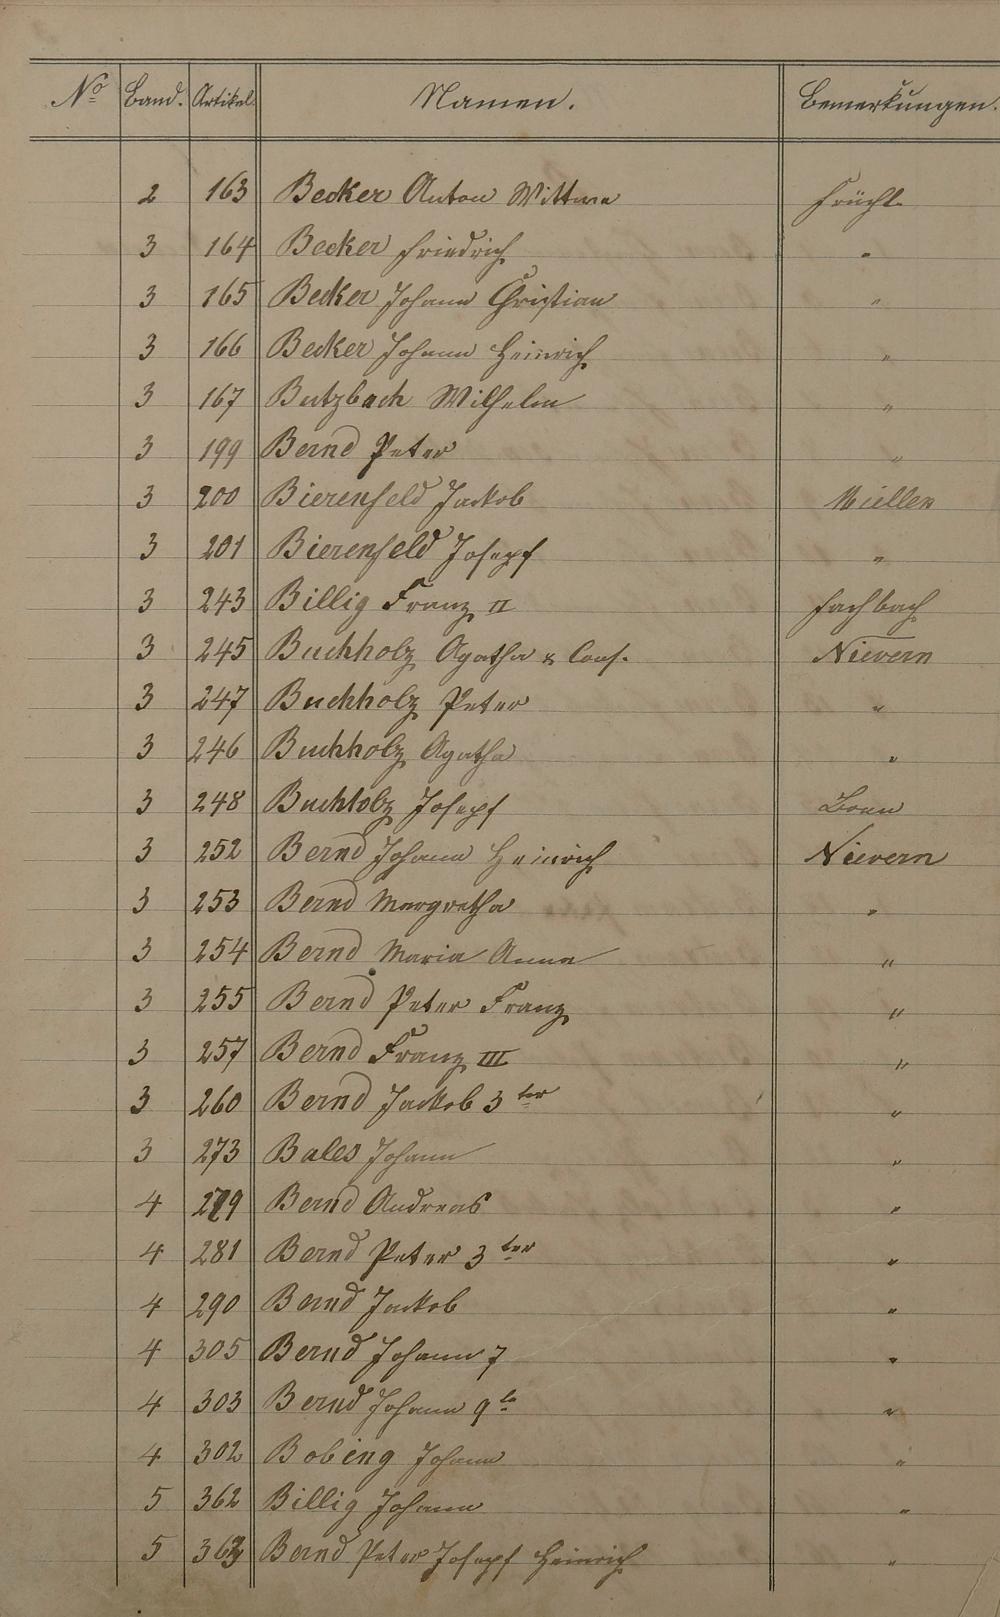 No Band. Artikel. Namen. Bemerkungen.
2 163 Becker Anton Wittwe Frücht
3 164 Becker Friedrich "
3 165 Becker Johann Christian "
3 166 Becker Johann Heinrich "
3 167 Butzbach Wilhelm "
3 199 Bernd Peter "
3 200 Bierenfeld Jackob Miellen
3 201 Bierenfeld Josepf "
3 243 Billig Franz II Fachbach
3 245 Buchholz Agatha & Cons. Nievern
3 247 Buchholz Peter "
3 246 Buchholz Agatha "
3 248 Buchholz Josepf
3 252 Bernd Johann Heinrich Nievern
3 253 Bernd Margretha "
3 254 Bernd Maria Anna "
3 255 Bernd Peter Franz "
3 257 Bernd Franz III "
3 260 Bernd Jackob 3ter "
3 273 Bales Johann "
4 279 Bernd Andreas "
4 281 Bernd Peter 3ter "
4 290 Bernd Jackob "
4 305 Bernd Johann 7 "
4 303 Bernd Johann 9te "
4 302 Bobeng Johann "
5 362 Billig Johann "
5 363 Bernd Peter Josepf Heinrich "